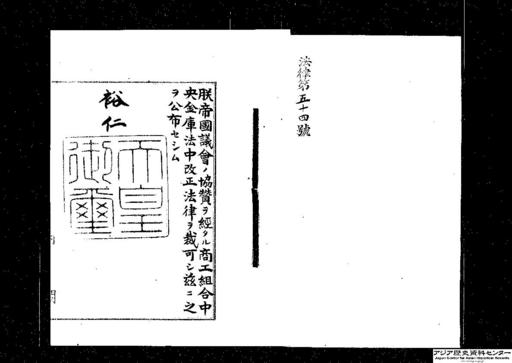 法律第五十四號
朕帝國議會ノ協賛ヲ經タル商工組合中
央金庫法中改正法律ヲ裁可シ茲ニ之
ヲ公布セシム
裕仁
天皇
御璽
アジア歴史資料センター
Japan Center for Asian Historical Records